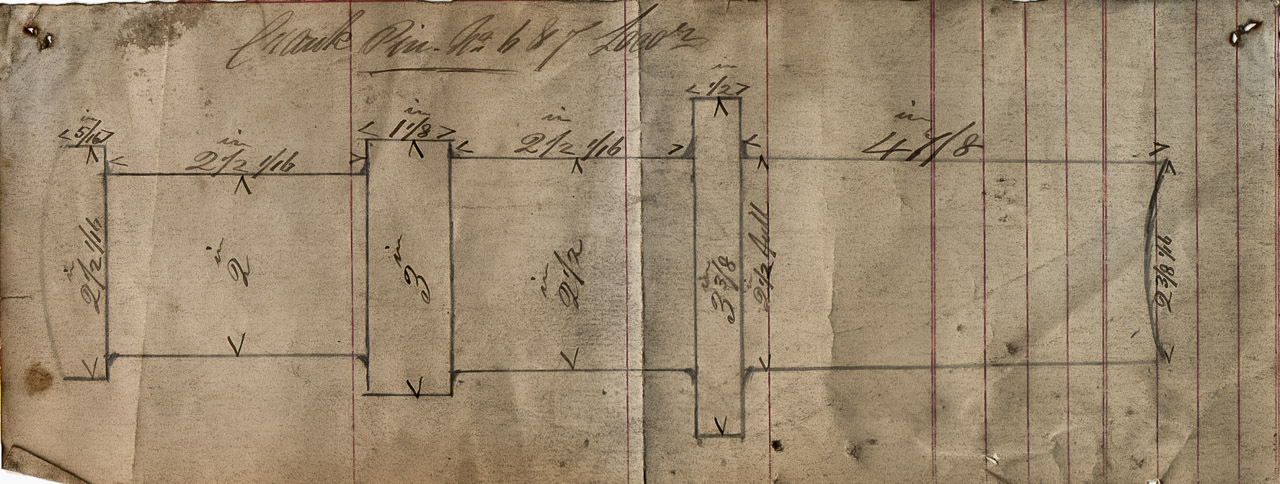 Crank Pin No 687 Loco's
in 5/16
in 2 1/2 1/16
in 1 1/8
in 2 1/2 1/16
in 1/2
in 4 7/8
in 2 1/2 1/16
in 2
in 3
in 2 1/2
in 3 3/8
in 2 1/2 full
2 3/8 1/16